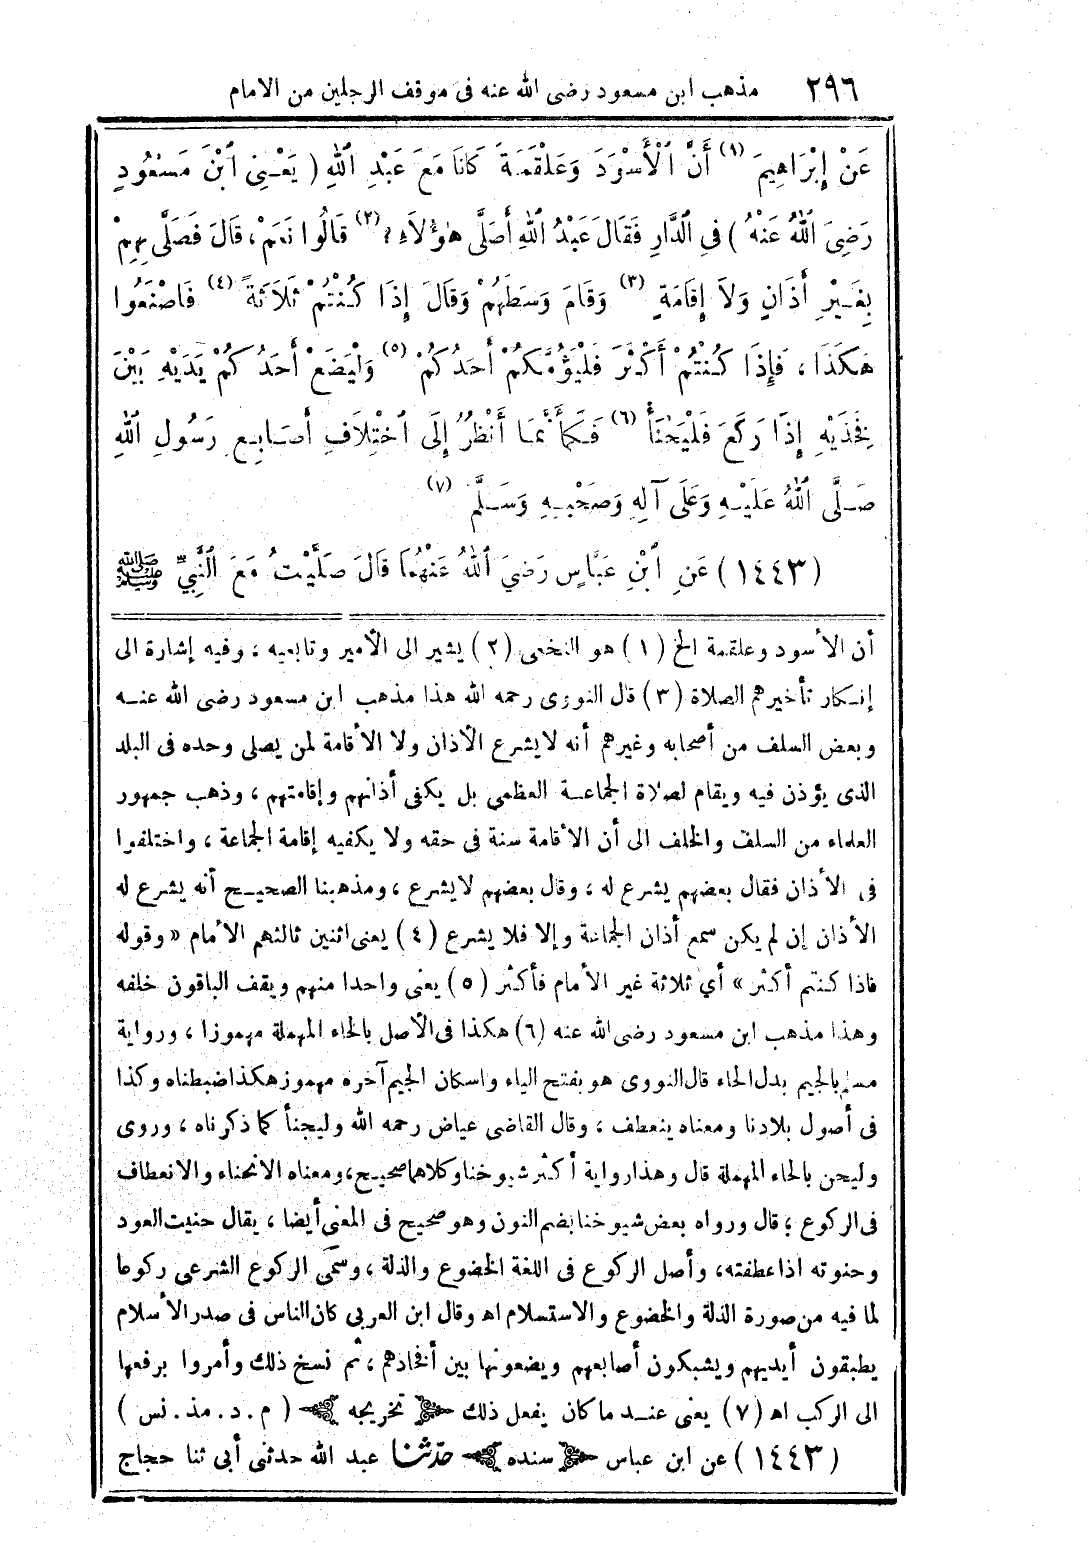 ٢٩٦ مذهب ابن مسعود رضى الله عنه فى موقف الرجلين من الامام
عَنْ إِبْرَاهِيمَ (١) أَنَّ الْأَسْوَدَ وَعَلْقَمَةَ كَانَا مَعَ عَبْدِ اللهِ ( يَعْنِى ابْنَ مَسْعُودٍ
رَضِىَ اللهُ عَنْهُ ) فِى الدَّارِ فَقَالَ عَبْدُ اللهِ أَصَلَّى هٰؤُلَاءِ ؟ (٢) قَالُوا نَعَمْ ، قَالَ فَصَلَّى بِهِمْ
بِغَيْرِ أَذَانٍ وَلَا إِقَامَةٍ (٣) وَقَامَ وَسَطَهُمْ وَقَالَ إِذَا كُنْتُمْ ثَلَاثَةً (٤) فَاصْنَعُوا
هَكَذَا ، فَإِذَا كُنْتُمْ أَكْثَرَ فَلْيَؤُمَّكُمْ أَحَدُكُمْ (٥) وَلْيَضَعْ أَحَدُكُمْ يَدَيْهِ بَيْنَ
فَخِذَيْهِ إِذَا رَكَعَ فَلْيَحْنَأْ (٦) فَكَأَنَّمَا أَنْظُرُ إِلَى اخْتِلَافِ أَصَابِعِ رَسُولِ اللهِ
صَلَّى اللهُ عَلَيْهِ وَعَلَى آلِهِ وَصَحْبِهِ وَسَلَّمَ (٧)
(١٤٤٣) عَنِ ابْنِ عَبَّاسٍ رَضِيَ اللهُ عَنْهُمَا قَالَ صَلَّيْتُ مَعَ النَّبِيِّ ﷺ
أن الأسود وعلقمة الخ (١) هو النخعى (٢) يشير الى الأمير وتابعيه ، وفيه إشارة الى
إنكار تأخيرهم الصلاة (٣) قال النووى رحمه الله هذا مذهب ابن مسعود رضى الله عنه
وبعض السلف من أصحابه وغيرهم أنه لا يشرع الأذان ولا الأقامة لمن يصلى وحده فى البلد
الذى يؤذن فيه ويقام لصلاة الجماعة العظمى بل يكفى أذانهم وإقامتهم ، وذهب جمهور
العلماء من السلف والخلف الى أن الأقامة سنة فى حقه ولا يكفيه إقامة الجماعة ، واختلفوا
فى الأذان فقال بعضهم يشرع له ، وقال بعضهم لا يشرع ، ومذهبنا الصحيح أنه يشرع له
الأذان إن لم يكن سمع أذان الجماعة وإلا فلا يشرع (٤) يعنى اثنين ثالثهم الأمام « وقوله
فاذا كنتم أكثر » أي ثلاثة غير الأمام فأكثر (٥) يعنى واحدا منهم ويقف الباقون خلفه
وهذا مذهب ابن مسعود رضى الله عنه (٦) هكذا فى الأصل بالحاء المهملة مهموزا ، ورواية
مسلم بالجيم بدل الحاء قال النووى هو بفتح الياء واسكان الجيم آخره مهموز هكذا ضبطناه وكذا
فى أصول بلادنا ومعناه ينعطف ، وقال القاضى عياض رحمه الله وليجنأ كما ذكرناه ، وروى
وليحن بالحاء المهملة قال وهذا رواية أكثر شيوخنا وكلاهما صحيح ، ومعناه الانحناء والانعطاف
فى الركوع ؛ قال ورواه بعض شيوخنا بضم النون وهو صحيح فى المعنى أيضا ، يقال حنيت العود
وحنوته اذا عطفته ، وأصل الركوع فى اللغة الخضوع والذلة ، وسمَّى الركوع الشرعى ركوعا
لما فيه من صورة الذلة والخضوع والاستسلام اه وقال ابن العربى كان الناس فى صدر الأسلام
يطبقون أيديهم ويشبكون أصابعهم ويضعونها بين أفخاذهم ، ثم نسخ ذلك وأمروا برفعها
الى الركب اه (٧) يعنى عند ما كان يفعل ذلك تخريجه ( م . د . مذ . نس )
(١٤٤٣) عن ابن عباس سنده حدّثنا عبد الله حدثنى أبى ثنا حجاج